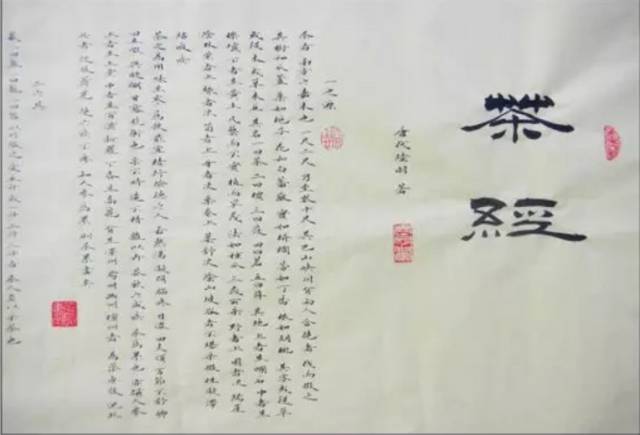 茶
經
唐代陸羽 著
一之源
茶者 南方之嘉木也 一尺二尺 乃至數十尺 其巴山峽川有兩人合抱者 伐而掇之
其樹如瓜蘆 葉如梔子 花如白薔薇 實如栟櫚 蒂如丁香 根如胡桃 其字或從草
或從木 或草木並 其名一曰茶 二曰檟 三曰蔎 四曰茗 五曰荈 其地上者生爛石 中者生
礫壤 下者生黃土 凡藝而不實 植而罕茂 法如種瓜 三歲可採 野者上 園者次 陽崖
陰林 紫者上 綠者次 筍者上 牙者次 葉卷上 葉舒次 陰山坡谷者 不堪採掇 性凝滯
結瘕疾
茶之為用 味至寒 為飲最宜 精行儉德之人 若熱渴 凝悶 腦疼 目澀 四支煩 百節不舒 聊
四五啜 與醍醐 甘露抗衡也 採不時 造不精 雜以卉 飲之成疾 茶為累也 亦猶人參
上者生上黨 中者生百濟新羅 下者生高麗 有生澤州 易州 幽州 檀州者 為藥無效 況非
此者 設服薺苨 使六疾不瘳 知人參為累 則茶累盡矣
二之具